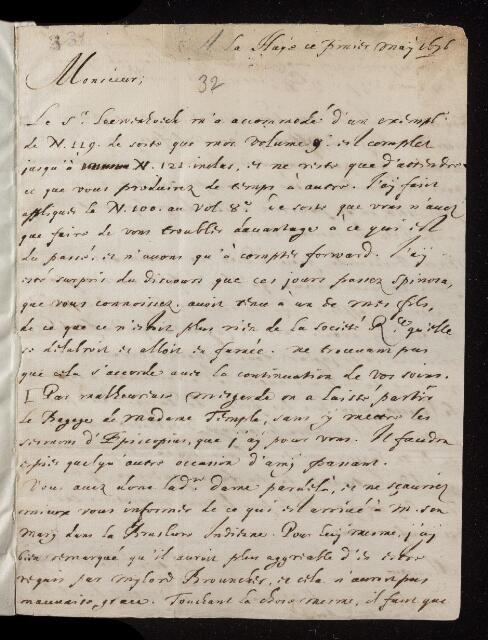 331
A la Haye ce p.mier may 1676
32
Monsieur,
Le Sr. Leewenhoeck m'a accommodé d'un exempl.
de N. 119. de sorte que mon volume 9e. est complet
jusqu'à N. 121. inclus, et ne reste que d'attendre
ce que vous produirez de temps à autre. J'ay fait
appliquer le N. 100. au Vol. 8e. de sorte que vous n'avez
que faire de vous troubler davantage à ce qui est
du passé, et n'avons qu'à compter forward. J'ay
esté surpris du discours que ces jours passez Spinosa,
que vous connoissez, avoit tenu à un de mes fils,
de ce que ce n'estoit plus rien de la Societé R.le, qu'elle
se delabroit et alloit en fumée. ne trouvant pas
que cela s'accorde avec la continuation de vos soins.
[Par malheureuse mesgarde on a laissé partir
le Bagage de madame Temple, sans y mettre les
sermons d'Episcopius, que j'ay pour vous. Il faudra
espier quelqu'autre occasion d'amy passant.
Vous avez donc lad.e dame pardelà, et ne sçauriez
mieux vous informer de ce qui est arrivé à M. son
mary dans la Bruslure Indienne. Pour luy mesme, j'ay
bien remarqué qu'il auroit plus aggreable d'en estre
requis par mylord Brouncker, et cela n'auroit pas
mauvaise grace. Touchant la chose mesme, il faut que